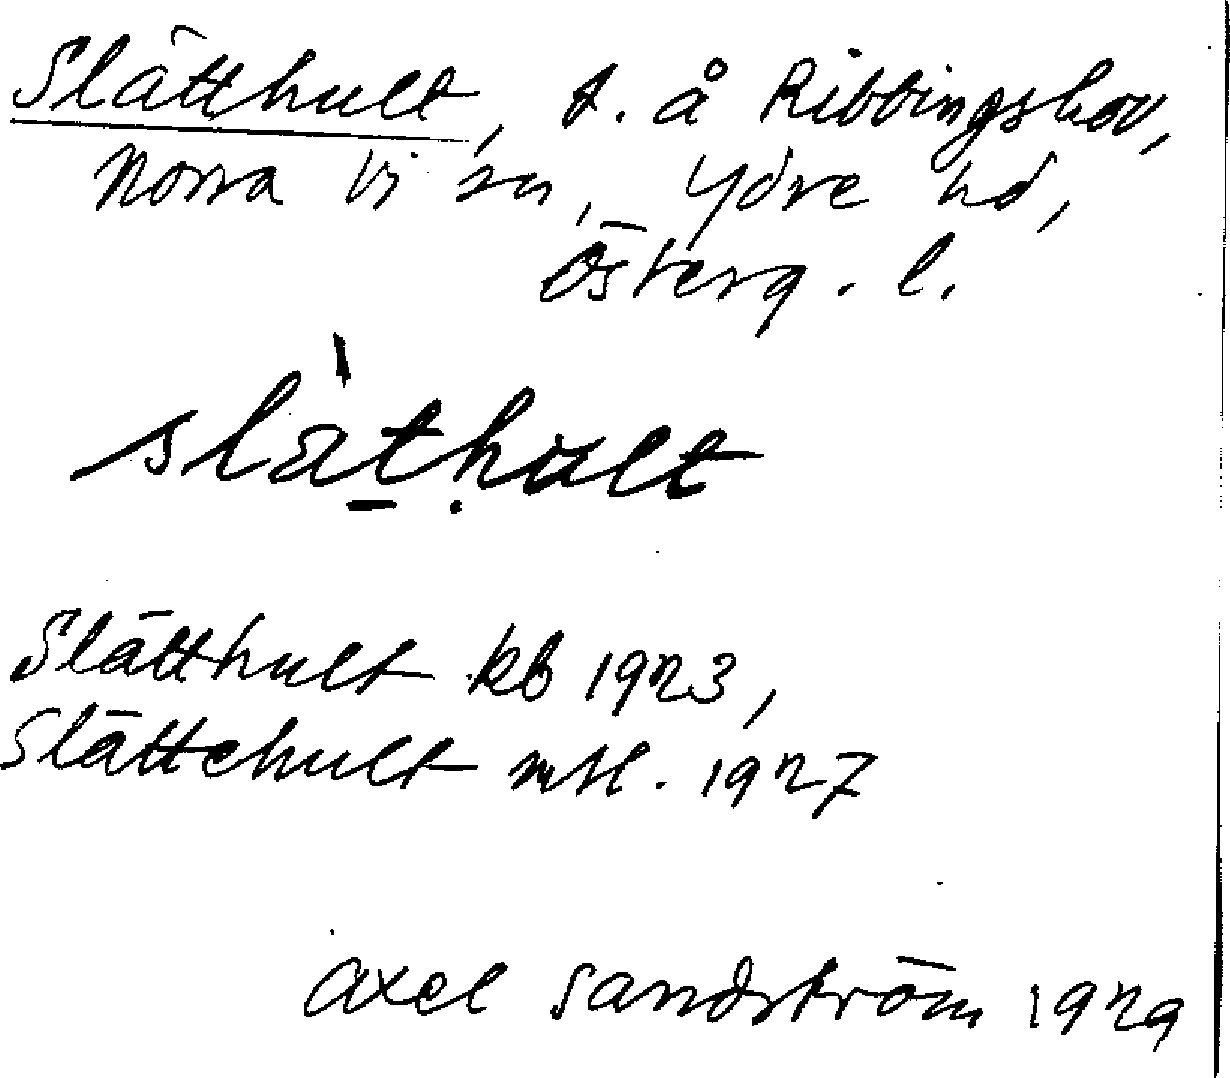 Slätthult, t. å Ribbingshov,
Norra Vi sn, Ydre hd,
Österg. l.
slàthult
Slätthult kb 1923,
Slättehult mtl. 1927
Axel Sandström 1929